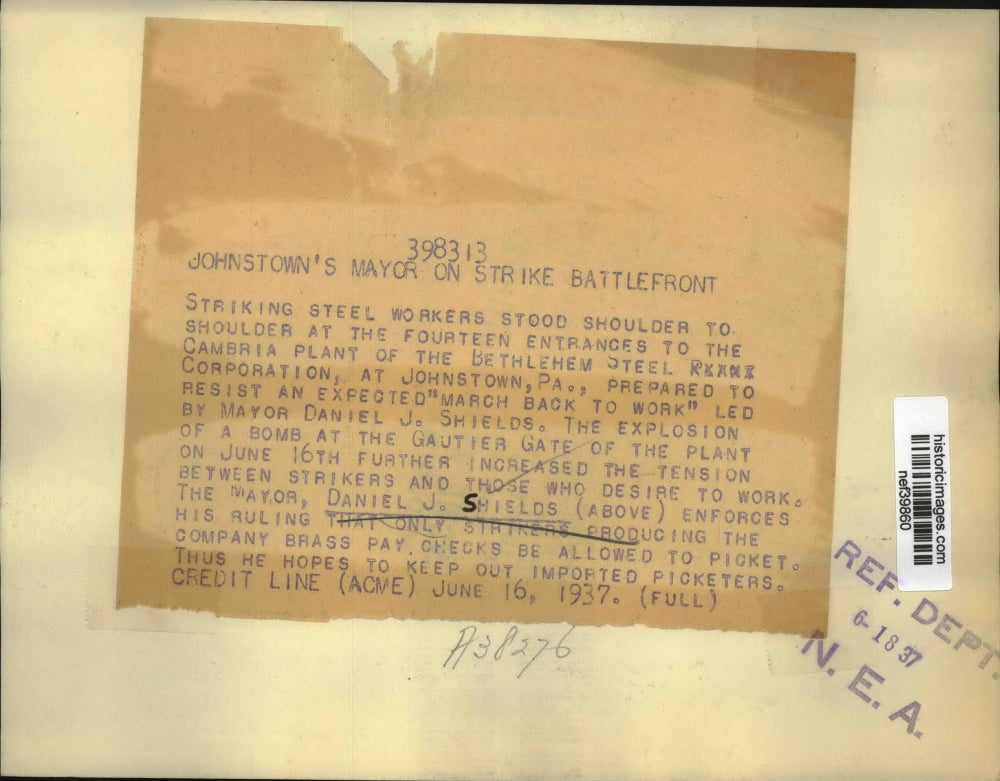 398313
JOHNSTOWN'S MAYOR ON STRIKE BATTLEFRONT
STRIKING STEEL WORKERS STOOD SHOULDER TO
SHOULDER AT THE FOURTEEN ENTRANCES TO THE
CAMBRIA PLANT OF THE BETHLEHEM STEEL
CORPORATION, AT JOHNSTOWN, PA., PREPARED TO
RESIST AN EXPECTED "MARCH BACK TO WORK" LED
BY MAYOR DANIEL J. SHIELDS. THE EXPLOSION
OF A BOMB AT THE GAUTIER GATE OF THE PLANT
ON JUNE 16TH FURTHER INCREASED THE TENSION
BETWEEN STRIKERS AND THOSE WHO DESIRE TO WORK.
THE MAYOR, DANIEL J. SHIELDS (ABOVE) ENFORCES
HIS RULING THAT ONLY STRIKERS PRODUCING THE
COMPANY BRASS PAY CHECKS BE ALLOWED TO PICKET.
THUS HE HOPES TO KEEP OUT IMPORTED PICKETERS.
CREDIT LINE (ACME) JUNE 16, 1937. (FULL)
A38276
historicimages.com
nef39860
REF. DEPT.
6-18 37
N. E. A.